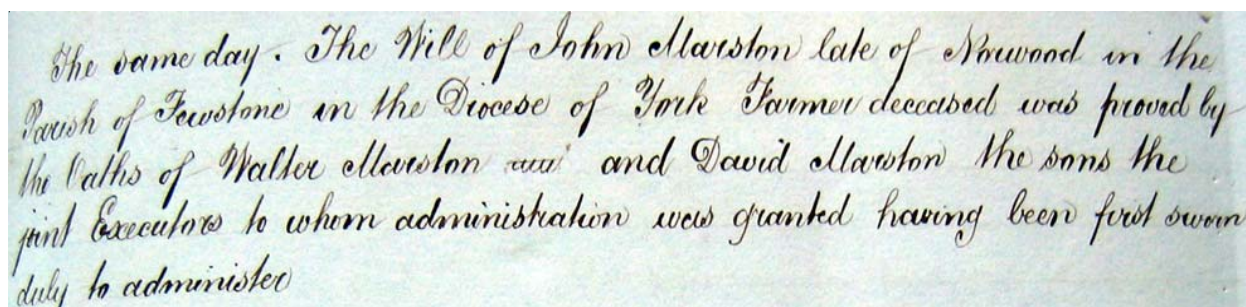 The same day. The Will of John Marston late of Norwood in the
Parish of Fewstone in the Diocese of York Farmer deceased was proved by
the Oaths of Walter Marston and David Marston the sons the
joint Executors to whom administration was granted having been first sworn
duly to administer